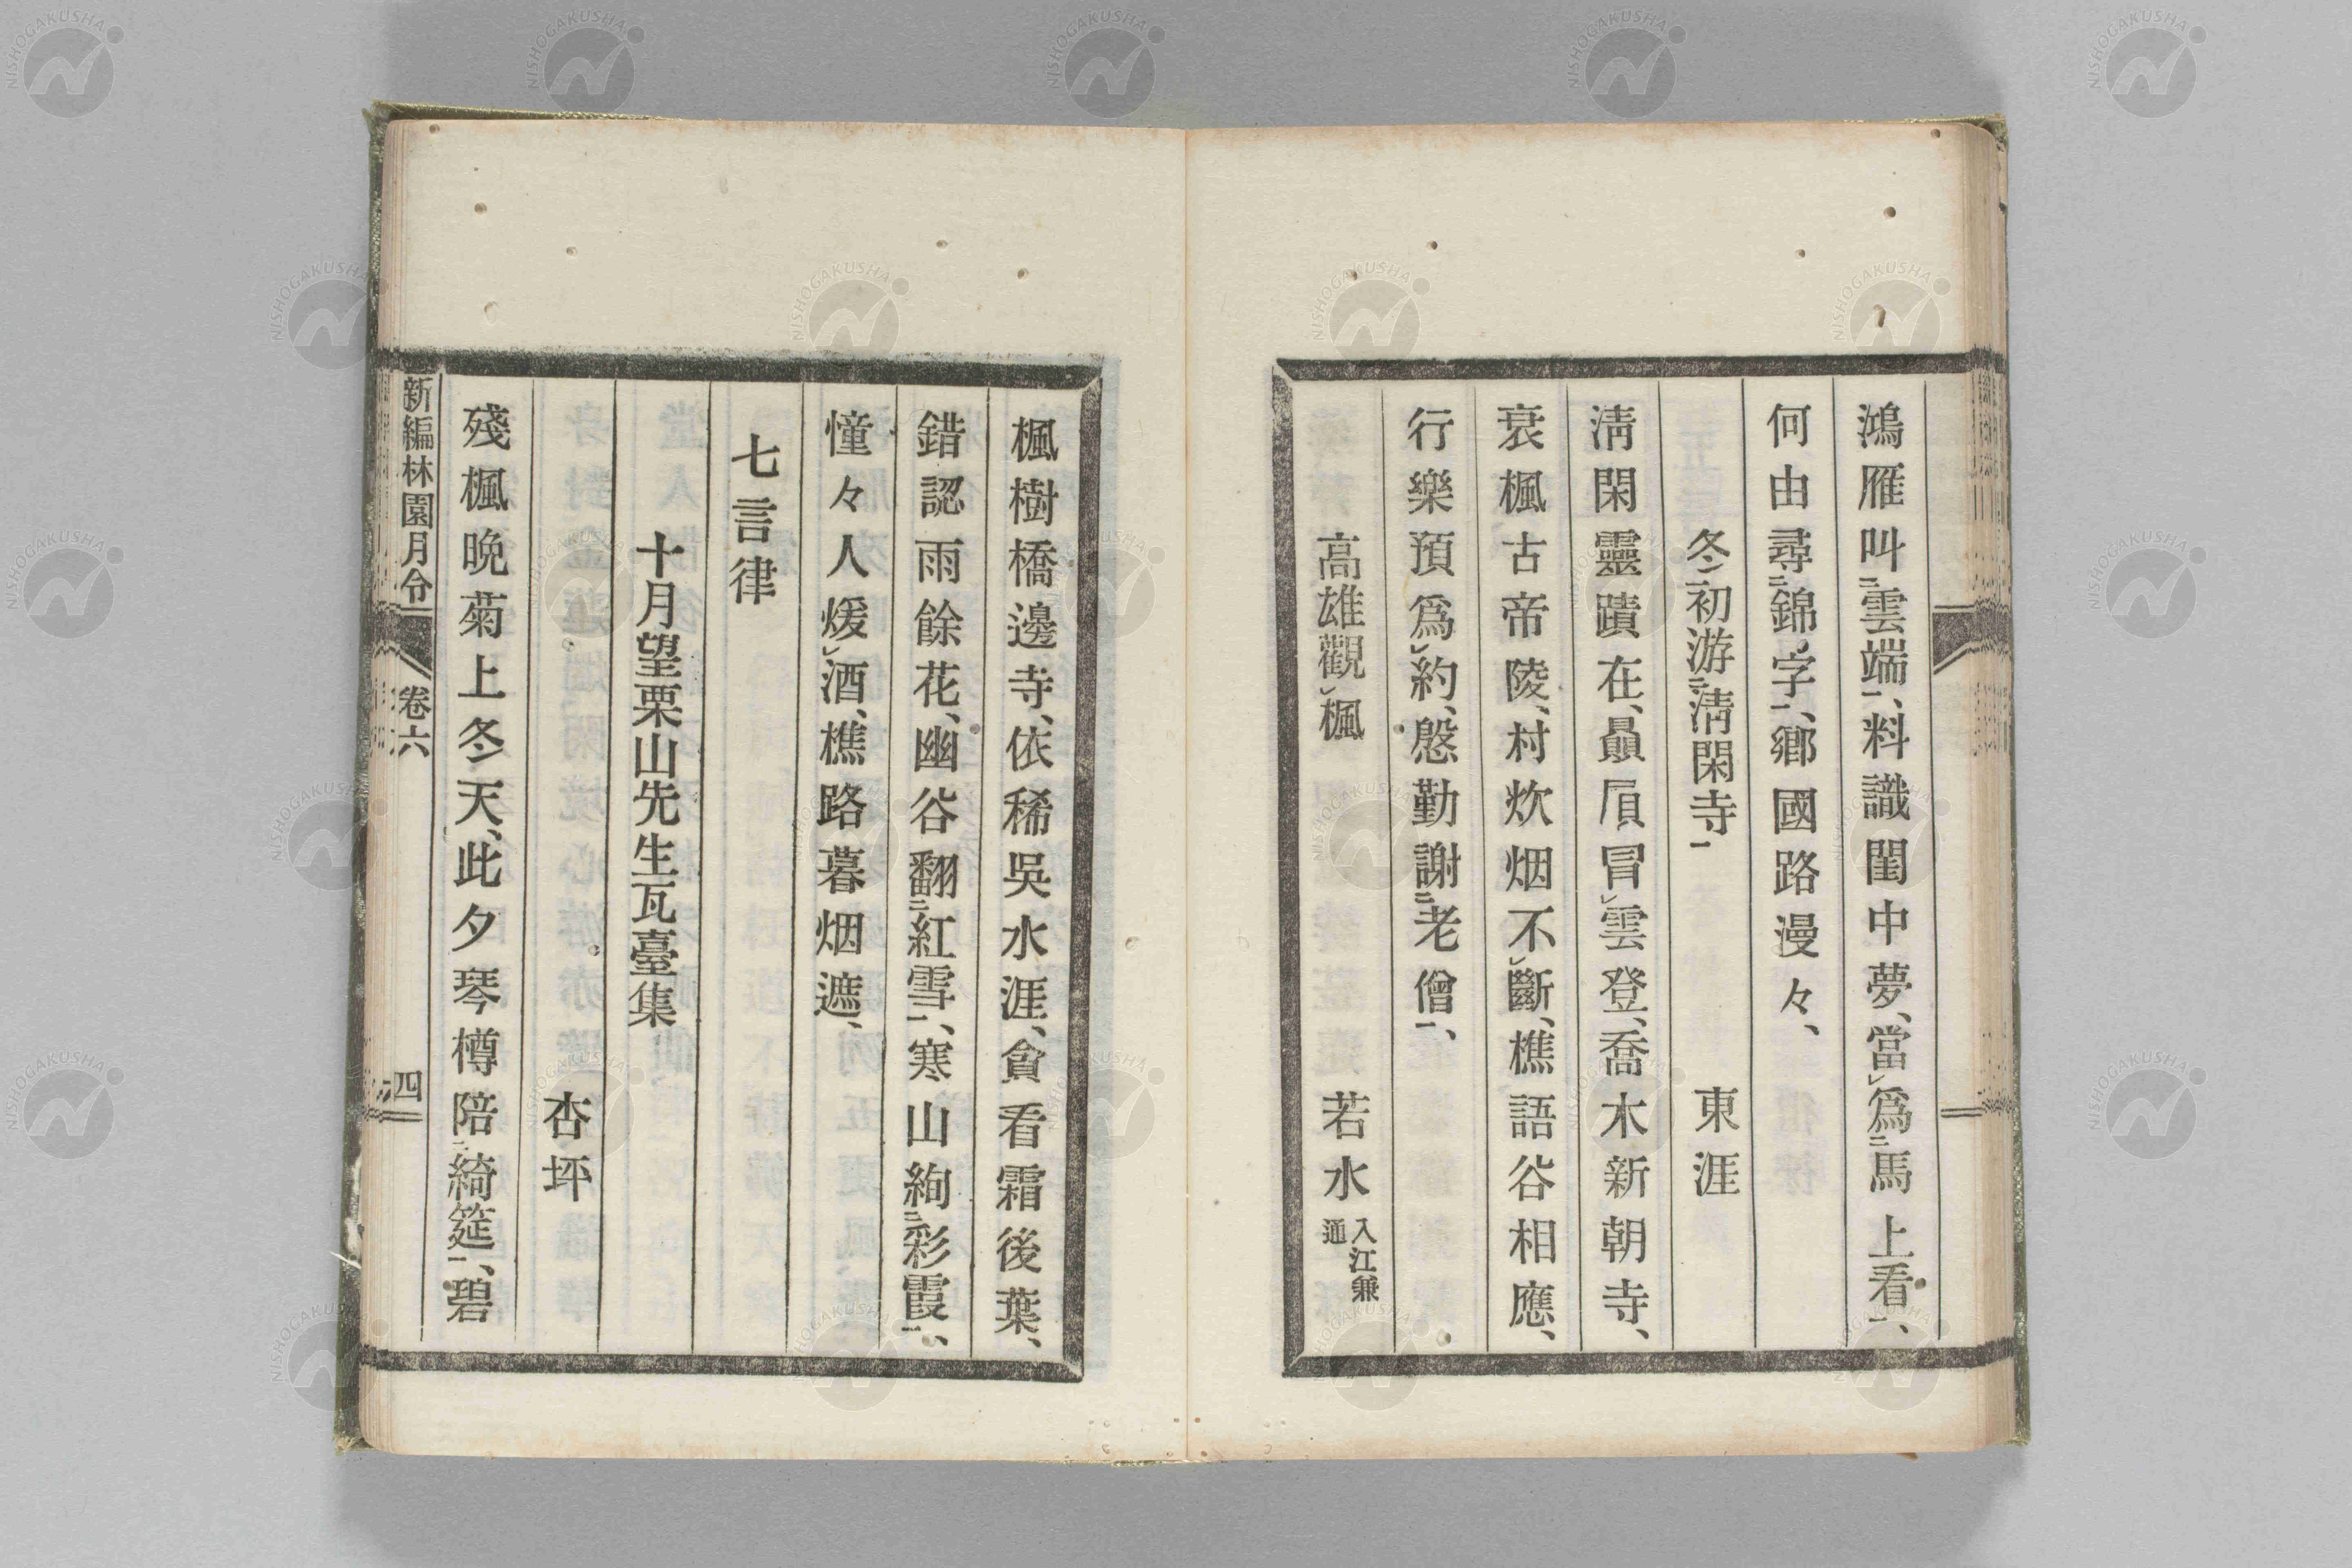 鴻雁叫㆓雲端㆒、料識閨中夢、當㆑爲㆓馬上看㆒、
何由尋㆓錦字㆒、鄉國路漫々、
冬初游㆓淸閑寺㆒ 東涯
淸閑靈蹟在、贔屓冒㆑雲登、喬木新朝寺、
衰楓古帝陵、村炊烟不㆑斷、樵語谷相應、
行樂預爲㆑約、慇勤謝㆓老僧㆒、
高雄觀㆑楓 若水 入江兼通
楓樹橋邊寺、依稀吳水涯、貪看霜後葉、
錯認雨餘花、幽谷翻㆓紅雪㆒、寒山絢㆓彩霞㆒、
憧々人煖㆑酒、樵路暮烟遮、
七言律
十月望栗山先生瓦臺集
杏坪
殘楓晩菊上冬天、此夕琴樽陪㆓綺筵㆒、碧
新編林園月令 卷六 四
NISHOGAKUSHA